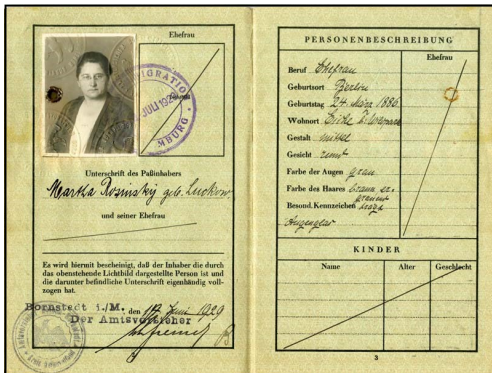 Ehefrau
Unterschrift des Paßinhabers
Martha Rosinsky geb. Luckow
und seiner Ehefrau
Es wird hiermit bescheinigt, daß der Inhaber die durch
das obenstehende Lichtbild dargestellte Person ist und
die darunter befindliche Unterschrift eigenhändig voll-
zogen hat.
Bornstedt i./M. den Juni 1929
Der Amtsvorsteher
PERSONENBESCHREIBUNG
Ehefrau
Beruf Ehefrau
Geburtsort Berlin
Geburtstag 24. März 1886
Wohnort Eiche
Gestalt mittel
Gesicht rund
Farbe der Augen grau
Farbe des Haares braun
Besond. Kennzeichen trägt
Augenglas
KINDER
Name Alter Geschlecht
3